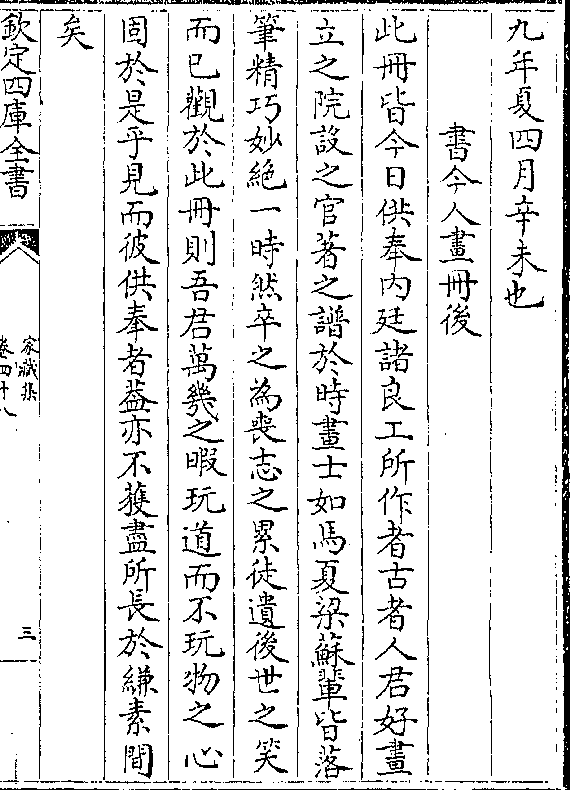 九年夏四月辛未也
書今人畫冊後
此冊皆今日供奉内廷諸良工所作者古者人君好畫
立之院設之官著之譜於時畫士如馬夏梁蘇輩皆落
筆精巧妙絶一時然卒之為喪志之累徒遺後世之笑
而已觀於此冊則吾君萬幾之暇玩道而不玩物之心
固於是乎見而彼供奉者葢亦不獲盡所長於縑素間
矣
欽定四庫全書
家藏集
卷四十八
三